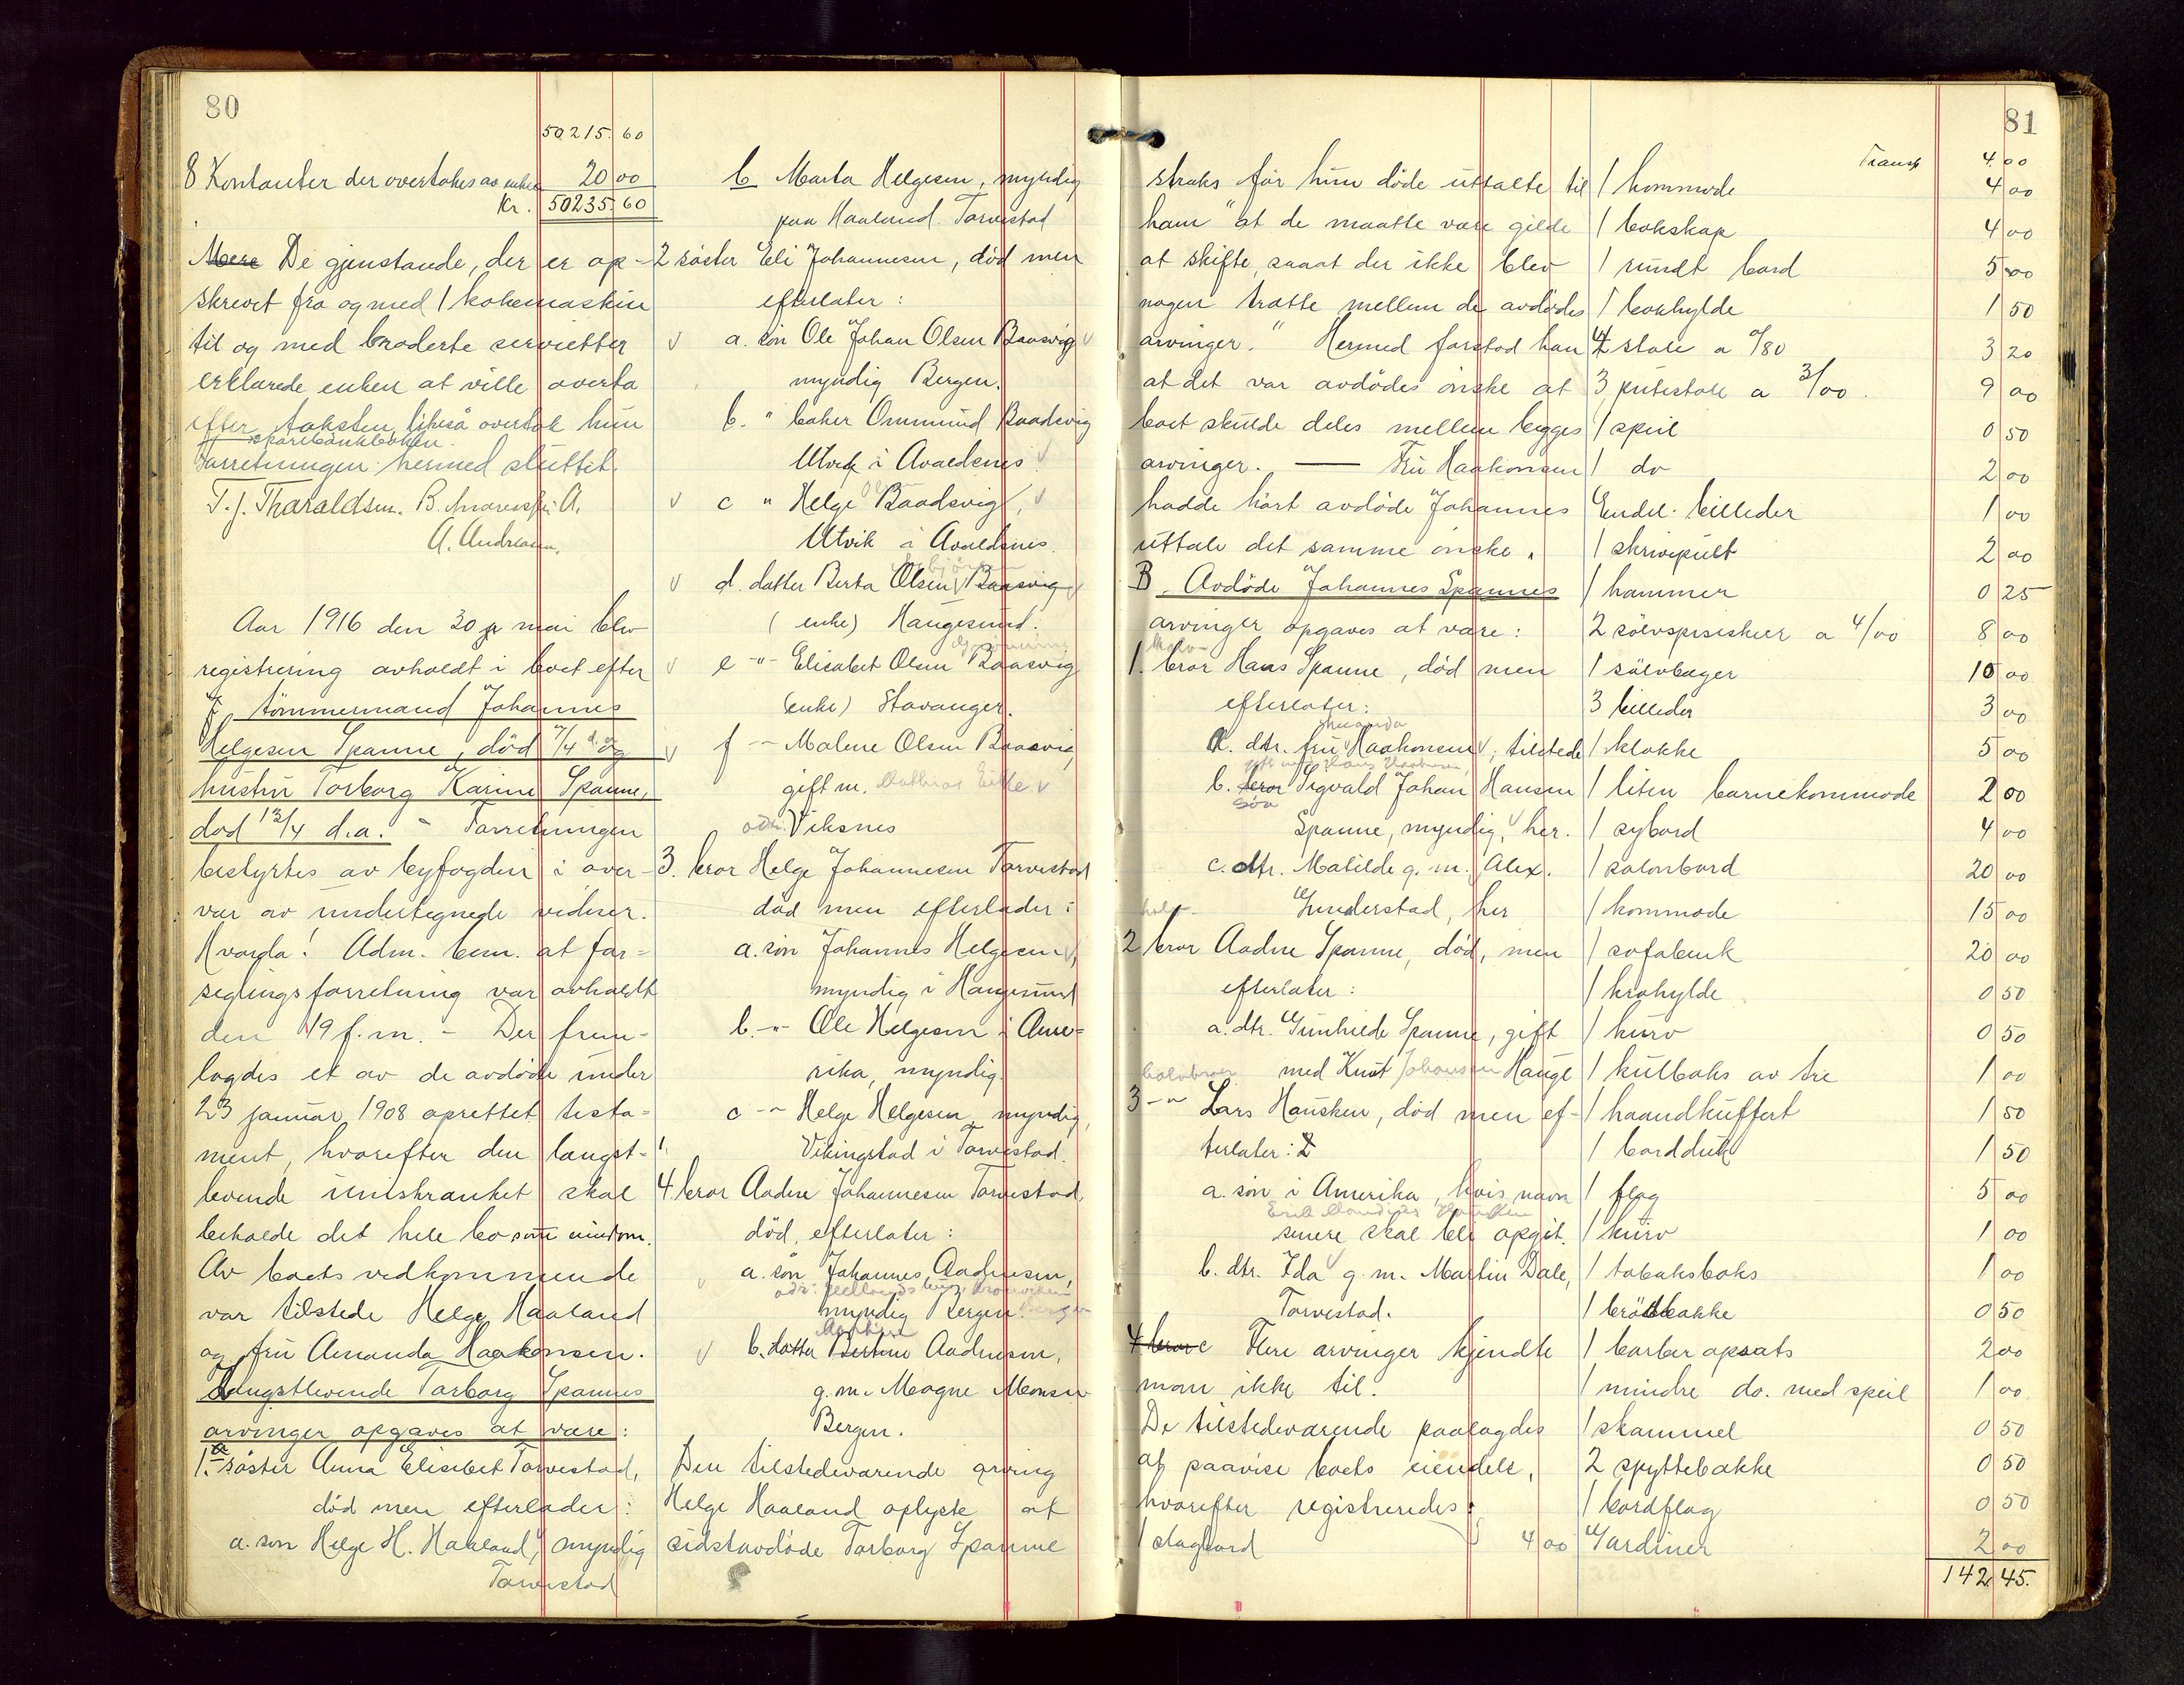 80
50215.60
8 Kontanter der overtakes av enken 20 00
Kr. 50235.60
Mere De gjenstande, der er op-
skrevet fra og med 1 kokemaskin
til og med broderte servietter
erklærede enken at ville overta
efter taksten, likeså overtok hun
sparebankboken.
Forretningen hermed sluttet.
T. J. Tharaldsen.
A. Andreasen.
Aar 1916 den 30 mai blev
registrering avholdt i boet efter
tömmermand Johannes
Helgesen Spanne, död /4 d.a. og
hustru Torborg Karine Spanne,
död 13/4 d.a. - Forretningen
bestyrtes av byfogden i over-
vær av undertegnede vidner.
Hvorda! Adm. bem. at for=
seglingsforretning var avholdt
den 19 f.m. - Der frem-
lagdes et av de avdöde under
23 januar 1908 oprettet testa=
ment, hvorefter den længst-
levende uinskrænket skal
beholde det hele bo som eiendom.
Av boets vedkommende
var tilstede Helge Haaland
og fru Amanda Haakonsen.
Længstlevende Torborg Spannes
arvinger opgaves at være:
1. söster Anna Elisabet Torvestad,
död men efterlader:
a. sön Helge H. Haaland, myndig
Torvestad
b Marta Helgesen, myndig
paa Haaland. Torvestad
2 söster Eli Johannesen, död men
efterlater:
a. sön Ole Johan Olsen Baasvig
myndig Bergen.
b. " baker Ommund Baadsvig
Utvik i Avaldsnes
c " Helge Baadsvig,
Utvik i Avaldsnes.
d. datter Berta Olsen Baasvig
(enke) Haugesund.
e -"- Elisabet Olsen Baasvig
(enke) Stavanger.
f -"- Malene Olsen Baasvig,
gift m. Mathias Eikje
adr. Viksnes
3. bror Helge Johannesen Torvestad
död men efterlader:
a. sön Johannes Helgesen,
myndig i Haugesund
b. -"- Ole Helgesen i Ame=
rika, myndig.
c -"- Helge Helgesen myndig,
Vikingstad i Torvestad.
4. bror Aadne Johannesen Torvestad,
död, efterlater:
a. sön Johannes Aadnesen,
myndig Bergen.
b. datter Bertine Aadnesen,
g.m. Magne Monsen
Bergen.
Den tilstedeværende arving
Helge Haaland oplyste at
sidstavdöde Torborg Spanne
81
straks för hun döde uttalte til
ham "at de maatte være gilde
at skifte, saaat der ikke blev
nogen trætte mellem de avdödes
arvinger." Hermed forstod han
at det var avdödes önske at
boet skulde deles mellem begges
arvinger. — Fru Haakonsen
hadde hört avdöde Johannes
uttale det samme önske.
B. Avdöde Johannes Spannes
arvinger opgaves at være:
halv-
1. bror Hans Spanne, död men
efterlater:
Amanda
a. dtr. fru Haakonsen, tilstede
gift med Hans Haakonsen,
b. bror Sigvald Johan Hansen
sön
Spanne, myndig, her.
c. dtr. Matilde g.m. Alex.
Gunderstad, her
halv-
2 bror Aadne Spanne, död, men
efterlater:
a. dtr. Gunhilde Spanne, gift
med Knut Johansen Hauge
halvbror
3 -"- Lars Hausken, död men ef-
terlater:
a. sön i Amerika, hvis navn
senere skal bli opgit.
b. dtr. Ida g.m. Martin Dale,
Torvestad.
4 bror c Flere arvinger kjendte
man ikke til.
De tilstedeværende paalagdes
at paavise boets eiendele,
hvorefter registreredes:
1 slagbord 4 00
Transp 4.00
1 kommode 4 00
1 bokskap 4 00
1 rundt bord 5 00
1 bokhylde 1 50
4 stole a /80 3 20
3 putestole a 3/00 9 00
1 speil 0 50
1 do 2 00
Endel billeder 1 00
1 skrivepult 2 00
1 hammer 0 25
2 sölvspiseskeer a 4/00 8 00
1 sölvbæger 10 00
3 billeder 3 00
1 klokke 5 00
1 liten barnekommode 2 00
1 sybord 4 00
1 salonbord 20 00
1 kommode 15 00
1 sofabenk 20 00
1 krohylde 0 50
1 kurv 0 50
1 kulboks av tre 1 00
1 haandkuffert 1 50
1 bordduk 1 50
1 flag 5 00
1 kurv 1 00
1 tobaksboks 1 00
1 brödbakke 0 50
1 barberopsats 2 00
1 mindre do. med speil 1 00
1 skammel 0 50
2 spyttebakke 0 50
1 bordflag 0 50
Gardiner 2 00
142.45.